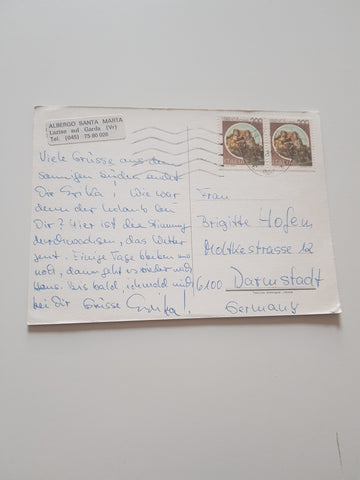 ALBERGO SANTA MARTA
Lazise sul Garda (Vr)
Tel. (045) 75 80 026
Viele Grüsse aus dem
sonnigen Süden sendet
Dir Erika! Wie war
denn der Urlaub bei
Dir? Hier ist die Stimmung
durchwachsen, das Wetter
gut. Einige Tage bleiben uns
noch, dann geht es wieder nach
Haus. Bis bald, ich meld mich
bei Dir Grüsse Erika!
Frau
Brigitte Hofem
Moltkestrasse 12
6100 Darmstadt
Germany